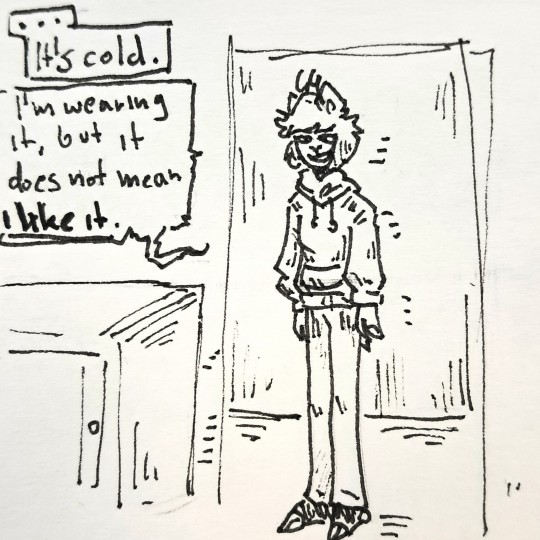 ...
It's cold.
I'm wearing
it, but it
does not mean
I like it.